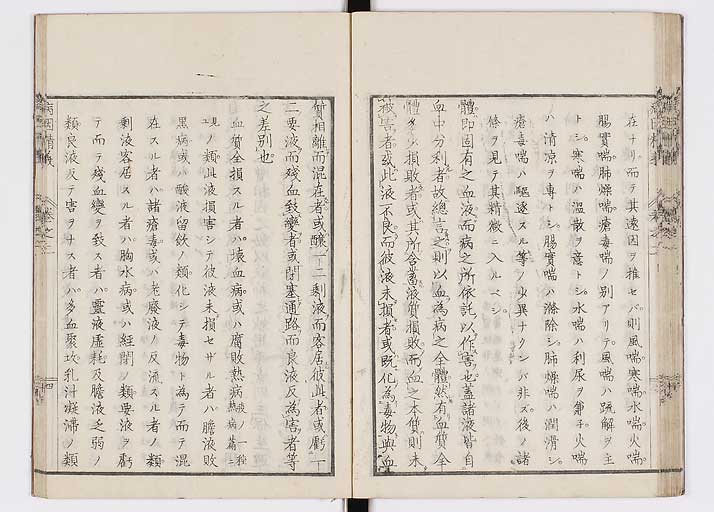 在ナリ而テ其遠因ヲ推セバ則風喘寒喘水喘火喘
腸實喘肺燥喘瘡毒喘ノ別アリテ風喘ハ疏解ヲ主
トシ寒喘ハ溫散ヲ意トシ水喘ハ利尿ヲ第チ火喘
ハ清凉ヲ専トシ腸實喘ハ滌除シ肺燥喘ハ潤滑シ
瘡毒喘ハ驅逐スル等ノ少異ナクンバ非ズ後ノ諸
條ヲ見テ其精微ニ入ルベシ
體即固有之血液而病之所依託以作害也蓋諸液皆自
血中分利者故總言之則以血為病之全體然有血質全
體多少損敗者或其所含蓄液質損敗而血之本質則未
被害者或此液不良而彼液未損者或既化為毒物與血
質相離而混在者或釀一二剩液而客居彼此者或虧一
二要液而殘血致變者或閉塞通路而良液反為害者等
之差別也
血質全損スル者ハ壊血病或ハ腐敗熱病疫ノ一種熱病篇ニ
見ユノ類此液損害シテ彼液未損セザル者ハ膽液敗
黒病或ハ酸液留飲ノ類化シテ毒物ト為テ而テ混
在スル者ハ諸瘡毒或ハ老廢液ノ反流スル者ノ類
剩液客居スル者ハ胸水病或ハ經閉ノ類要液ヲ虧
テ而テ殘血變ヲ致ス者ハ靈液虚耗及膽液乏弱ノ
類良液反テ害ヲナス者ハ多血聚攻乳汁凝滯ノ類
四